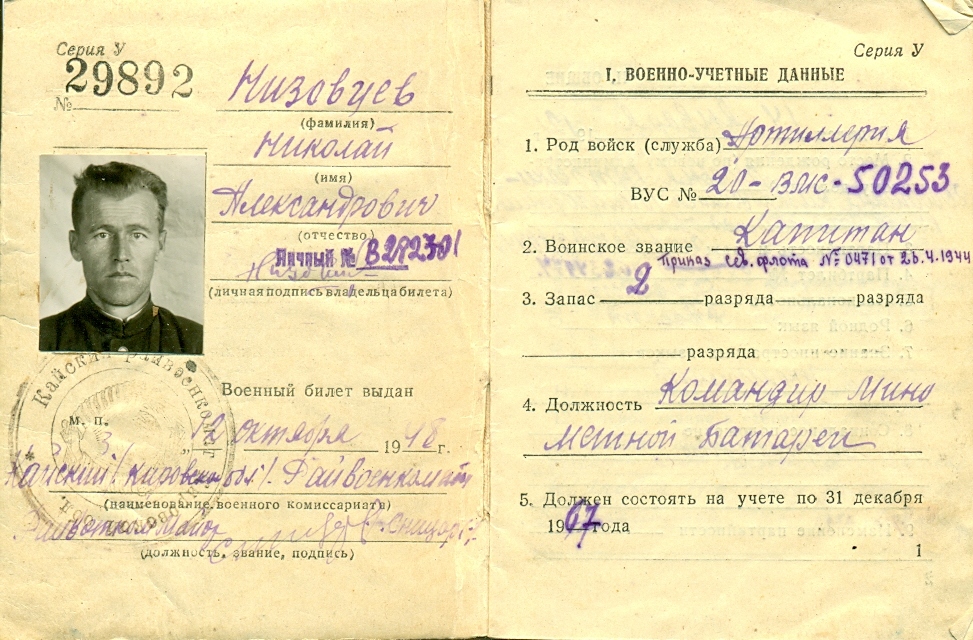 Серия У
29892
№
Низовцев
(фамилия)
Николай
(имя)
Александрович
(отчество)
Личный № В282301
(личная подпись владельца билета)
Военный билет выдан
М. П.
12 октября 1948 г.
Кайский /Кировской обл/. Райвоенкомат
(наименование военного комиссариата)
Райвоенком майор
(должность, звание, подпись)
Кайский райвоенкомат
Серия У
I. ВОЕННО-УЧЕТНЫЕ ДАННЫЕ
1. Род войск (служба) Артиллерия
ВУС № 20-ВМС-50253
2. Воинское звание Капитан
Приказ Сев. флота № 0471 от 26.4.1944
3. Запас 2 разряда разряда
разряда
4. Должность Командир мино
метной батареи
5. Должен состоять на учете по 31 декабря
1967 года
1